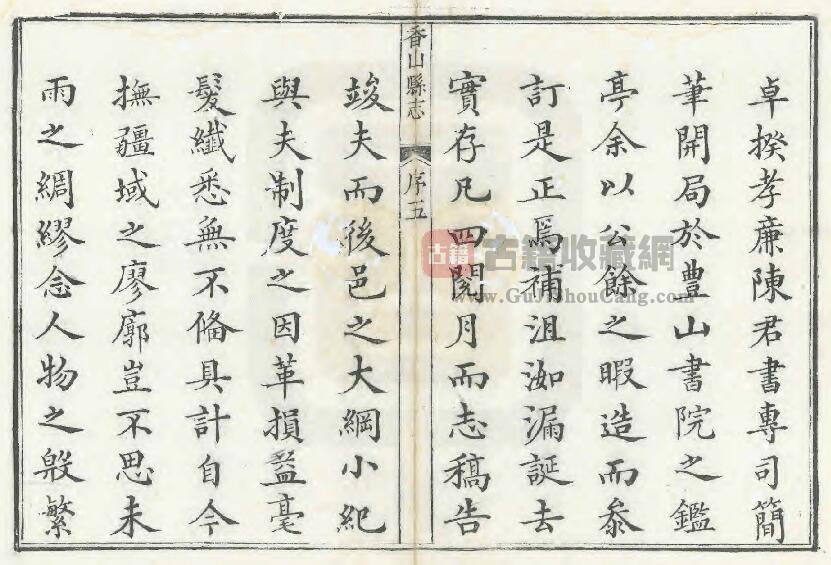 卓揆孝廉陳君書專司簡
筆開局於豊山書院之鑑
亭余以公餘之暇造而叅
訂是正焉補沮洳漏誕去
實存凡四閱月而志稿告
香山縣志
序五
竣夫而後邑之大綱小紀
與夫制度之因革損益毫
髮纖悉無不偹具計自今
撫疆域之廖廓豈不思未
雨之綢繆念人物之殷繁
古籍
古籍收藏網
www.GuJiShouCang.com